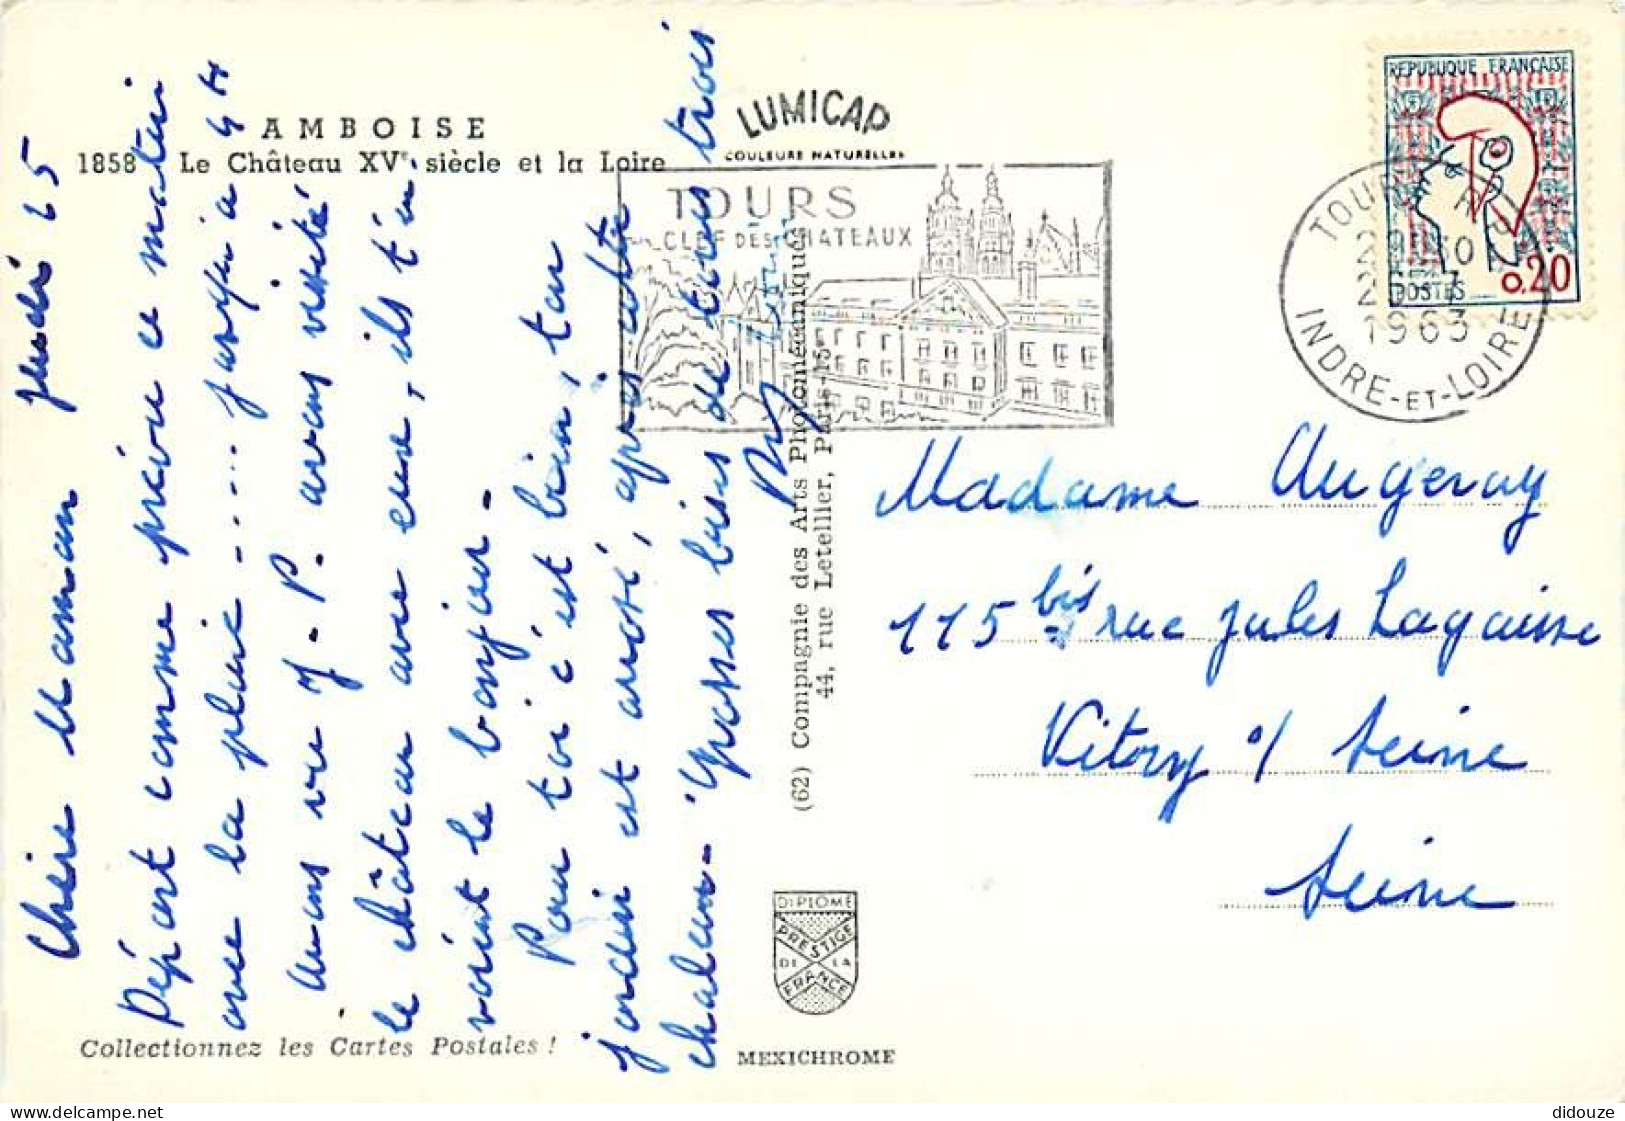 AMBOISE
1858 Le Château XVe siècle et la Loire
LUMICAP
COULEURS NATURELLES
TOURS
CLEF DES CHATEAUX
REPUBLIQUE FRANÇAISE
0,20
POSTES
TOURS
1963
INDRE-ET-LOIRE
Chère Maman jeudi 25
Départ comme prévu ce matin
avec la pluie ........ jusqu'à 4 H
Avons vu J-P. avons visité
le château avec eux, ils t'en-
voient le bonjour -
Pour toi c'est bien, ton
jardin est arrosé, après cette
chaleur - Grosses bises de tous trois
Madame Augeray
115 bis rue Jules Lagaisse
Vitory s/ Seine
Seine
(62) Compagnie des Arts Photomécaniques
44, rue Letellier, Paris-15e
DIPLOME
PRESTIGE
DE LA
FRANCE
Collectionnez les Cartes Postales !
MEXICHROME
didouze